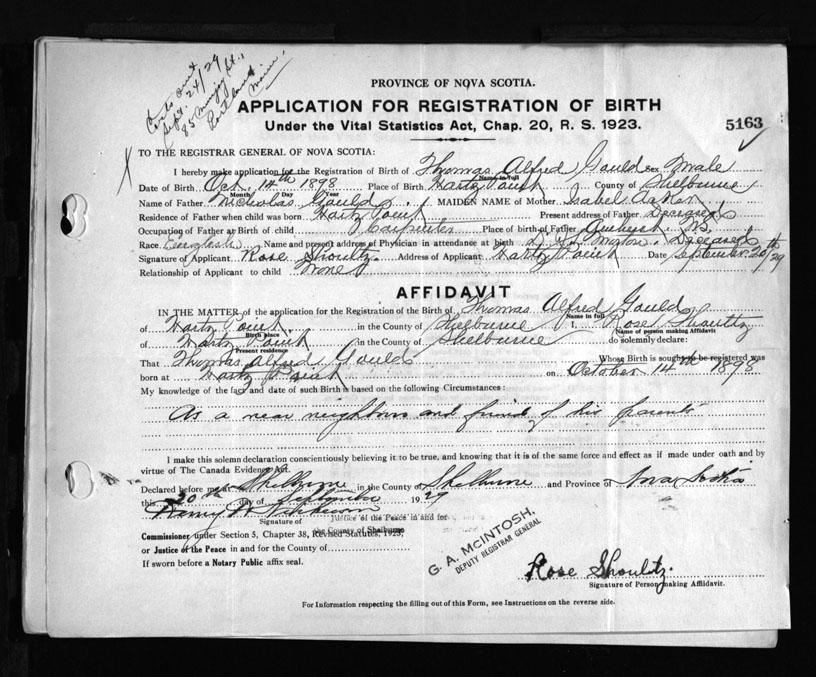 Sept. 24/29
Portland
PROVINCE OF NOVA SCOTIA.
APPLICATION FOR REGISTRATION OF BIRTH
5163
Under the Vital Statistics Act, Chap. 20, R. S. 1923.
TO THE REGISTRAR GENERAL OF NOVA SCOTIA:
I hereby make application for the Registration of Birth of Thomas Alfred Gould Sex Male
Name in full
Date of Birth Oct. 14th 1898 Place of Birth Hartz Point County of Shelburne
Month Day Year
Name of Father Nicholas Gould MAIDEN NAME of Mother Isabel
Residence of Father when child was born Hartz Point Present address of Father Deceased
Occupation of Father of child Carpenter Place of birth of Father Amherst N.S.
Race English Name and present address of Physician in attendance at birth Deceased
Signature of Applicant Rose Shoultz. Address of Applicant Hartz Point Date September 20th/29
Relationship of Applicant to child None
AFFIDAVIT
IN THE MATTER of the application for the Registration of the Birth of Thomas Alfred Gould
Name in full
of Hartz Point in the County of Shelburne I, Rose Shoultz
Birth place Name of person making Affidavit
of Hartz Point in the County of Shelburne do solemnly declare:
Present residence
That Thomas Alfred Gould Whose Birth is sought to be registered was
born at Hartz Point on October 14th 1898
My knowledge of the fact and date of such Birth is based on the following Circumstances:
As a near neighbour and friend of his parents
I make this solemn declaration conscientiously believing it to be true, and knowing that it is of the same force and effect as if made under oath and by
virtue of The Canada Evidence Act.
Declared before me at Shelburne in the County of Shelburne and Province of Nova Scotia
this 20th day of September 1929
Signature of Justice of the Peace in and for
the County of Shelburne
Commissioner under Section 5, Chapter 38, Revised Statutes, 1923,
or Justice of the Peace in and for the County of
If sworn before a Notary Public affix seal.
G. A. McINTOSH,
DEPUTY REGISTRAR GENERAL
Rose Shoultz.
Signature of Person making Affidavit.
For Information respecting the filling out of this Form, see Instructions on the reverse side.